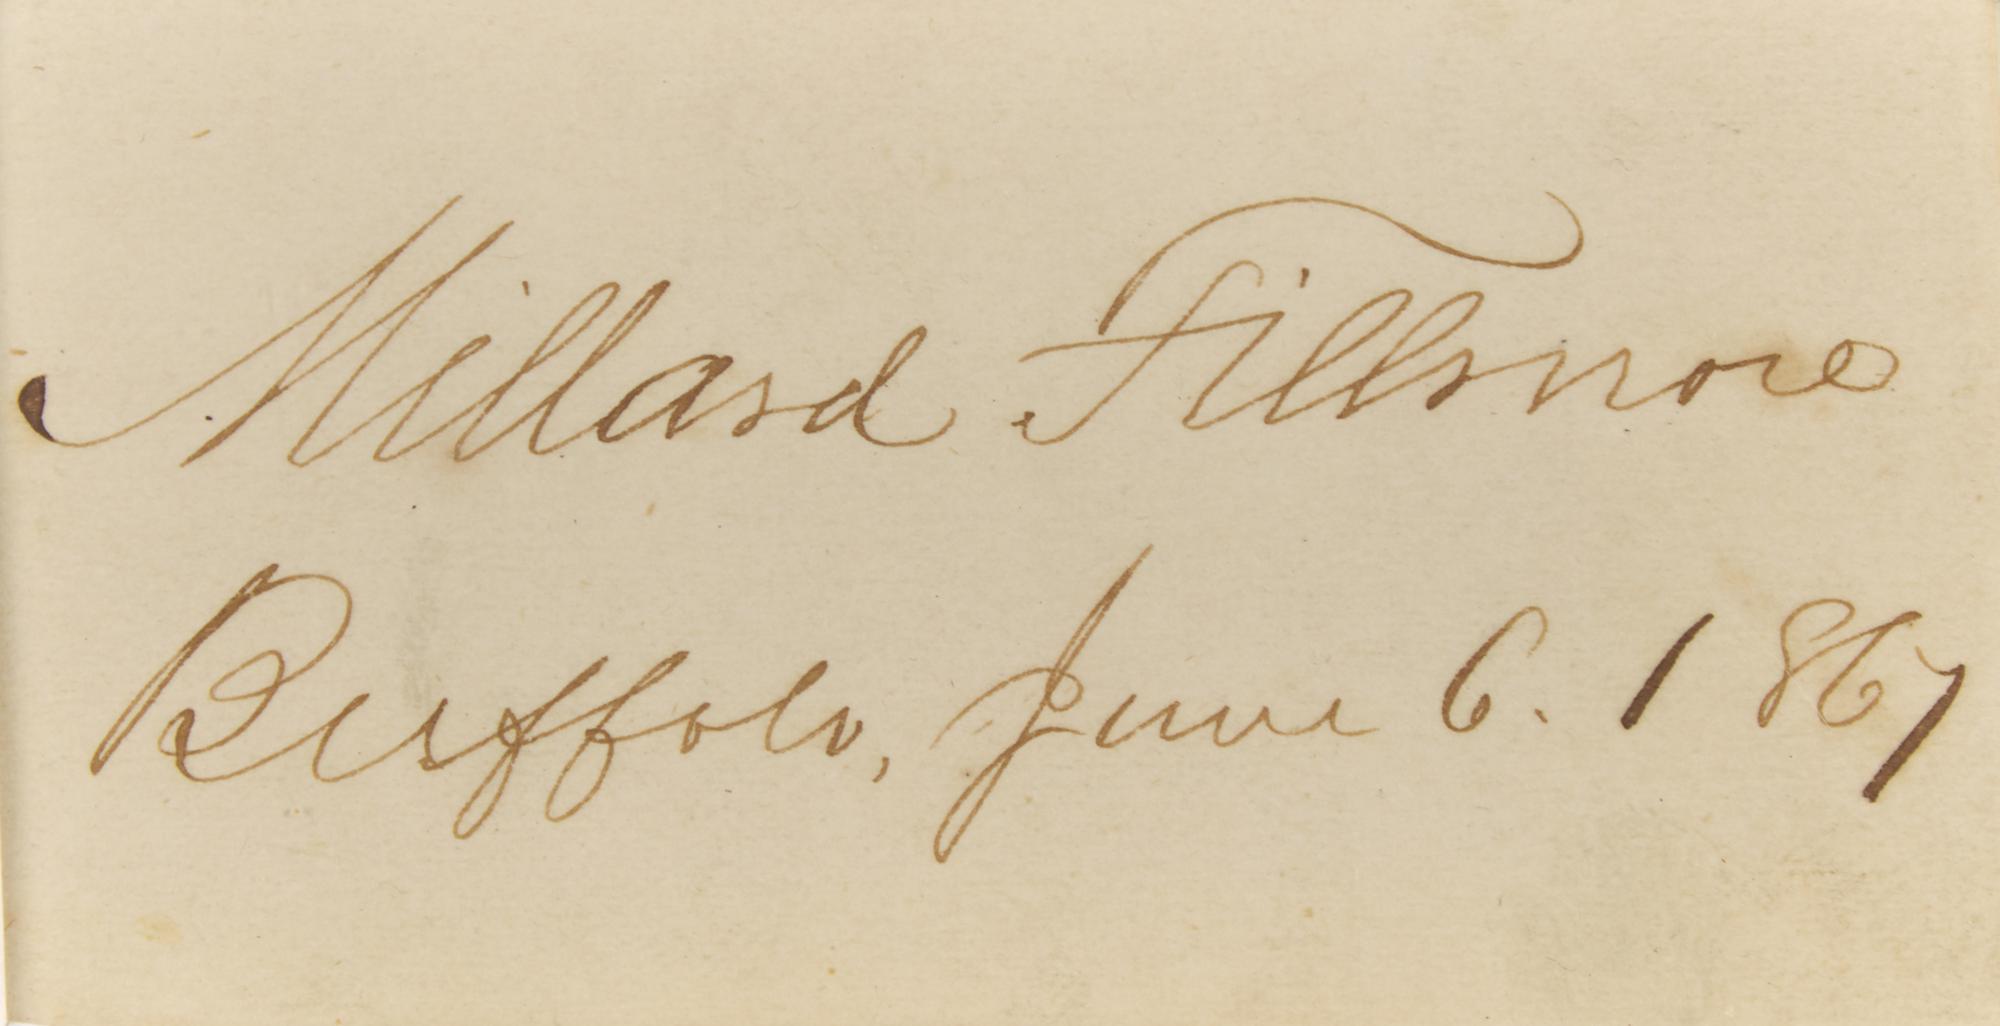 Millard Fillmore
Buffalo, June 6. 1867